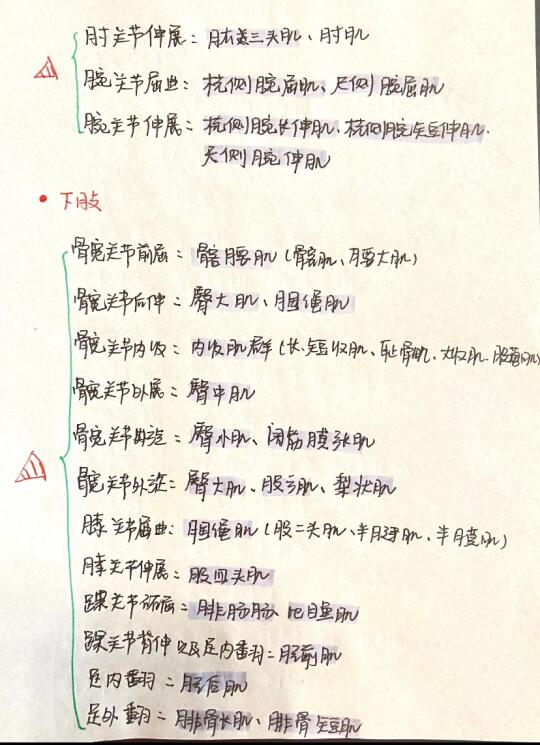 肘关节伸展：肱三头肌、肘肌
腕关节屈曲：桡侧腕屈肌、尺侧腕屈肌
腕关节伸展：桡侧腕长伸肌、桡侧腕短伸肌、
尺侧腕伸肌
下肢
髋关节前屈：髂腰肌(髂肌、腰大肌)
髋关节后伸：臀大肌、腘绳肌
髋关节内收：内收肌群(长、短收肌、耻骨肌、大收肌、股薄肌)
髋关节外展：臀中肌
髋关节内旋：臀小肌、阔筋膜张肌
髋关节外旋：臀大肌、股方肌、梨状肌
膝关节屈曲：腘绳肌(股二头肌、半腱肌、半膜肌)
膝关节伸展：股四头肌
踝关节跖屈：腓肠肠、比目鱼肌
踝关节背伸以及足内翻：胫前肌
足内翻：胫后肌
足外翻：腓骨长肌、腓骨短肌